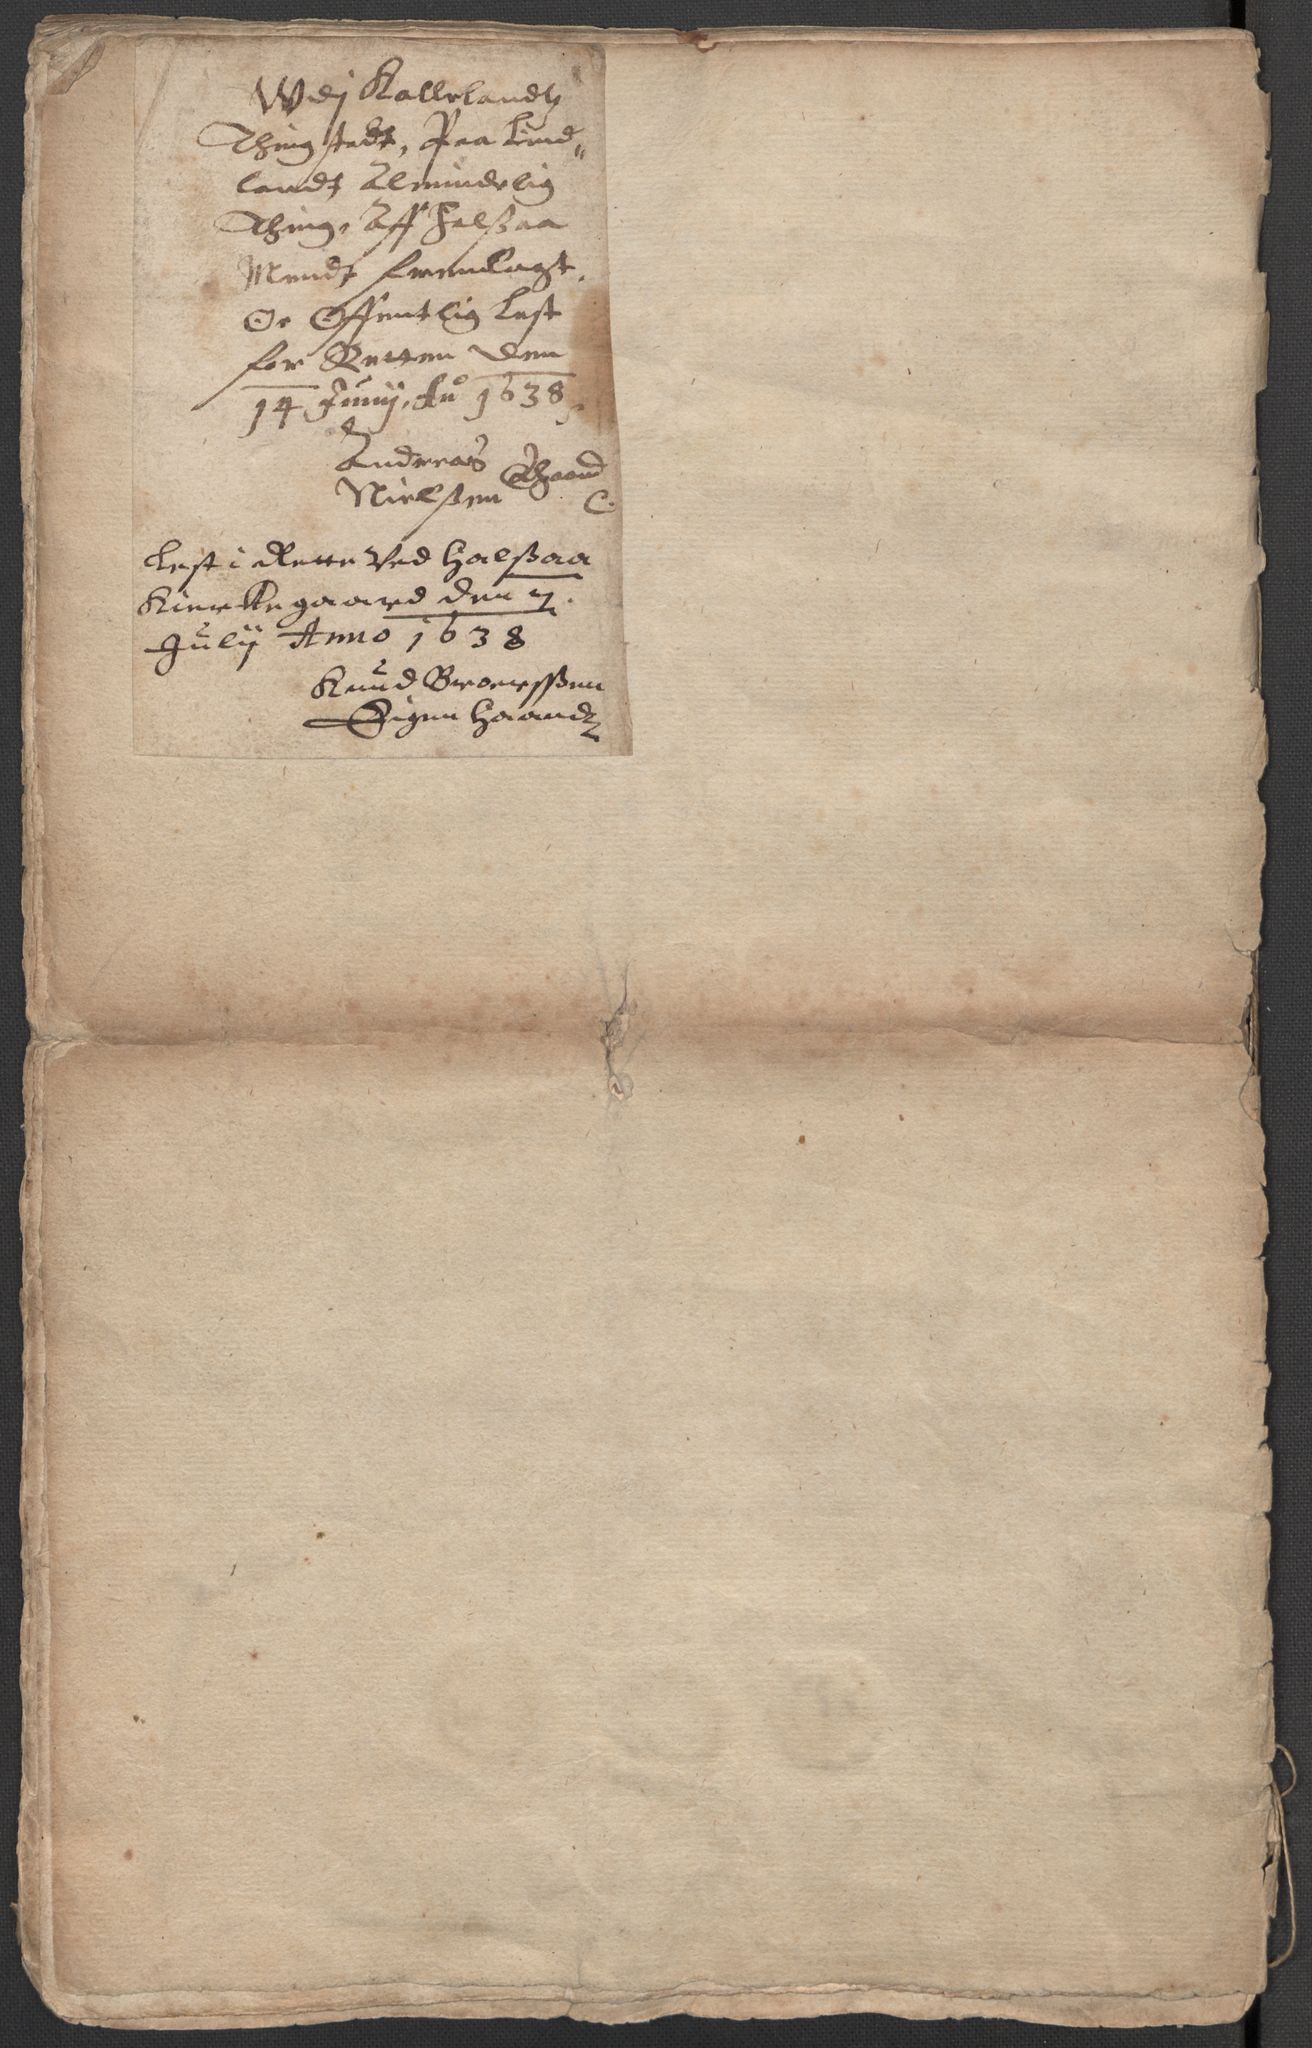 Wdj Kallelandtz
Thingstedt, Paa Lind„
landt Almindelig
Thing, Aff Halßaa
Mendt fremlagt,
Oc Offentlig Lest
for Retten Den
14 Junij, Ao 1638,
Andreas
Nielßen Ehaand
Lest i Rette Ved Halßaa
Kierkegaard den 7.
Julij Anno 1638
Knud Broerßen
Eigen Haandt